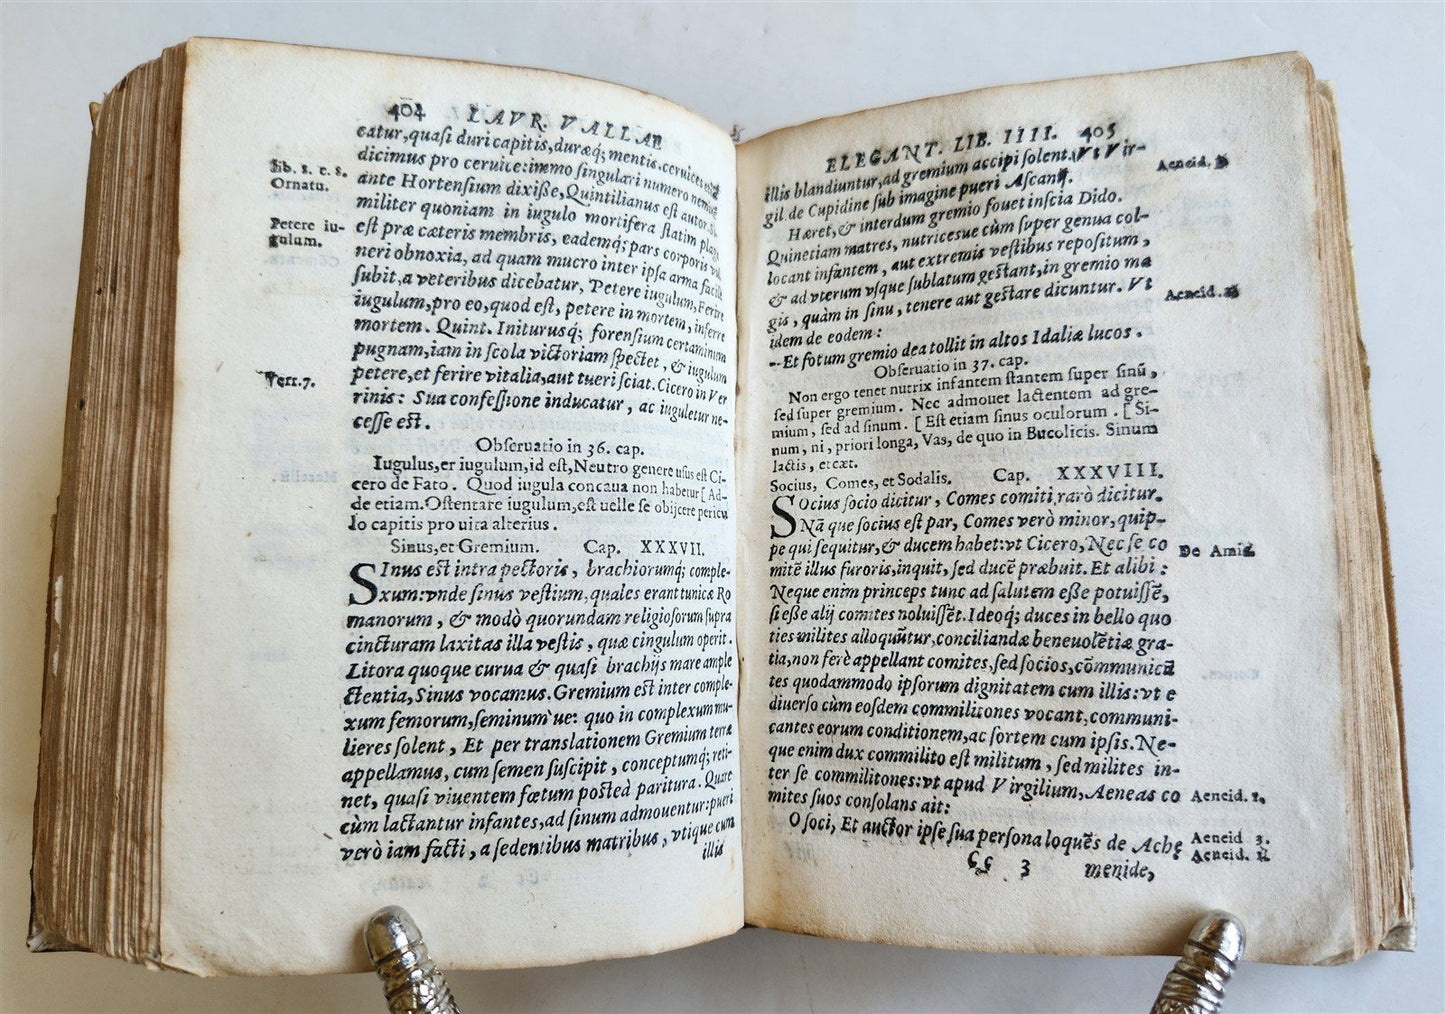 404 LAVR. VALLAE
catur, quasi duri capitis, duræq; mentis. cervices
dicimus pro cervice: immo singulari numero
ante Hortensium dixiße, Quintilianus est autor.
militer quoniam in iugulo mortifera statim plaga
est præ cæteris membris, eademq; pars corporis
neri obnoxia, ad quam mucro inter ipsa arma facile
subit, a veteribus dicebatur, Petere iugulum, Ferire
iugulum, pro eo, quod est, petere in mortem, inferre
mortem. Quint. Initurusq; forensium certaminum
pugnam, iam in scola victoriam spectet, & iugulum
petere, et ferire vitalia, aut tueri sciat. Cicero in Ver
rinis: Sua confessione inducatur, ac iuguletur ne-
cesse est.
lib. 8. c. 8.
Ornatu.
Petere iu-
gulum.
Verr. 7.
Obseruatio in 36. cap.
Iugulus, er iugulum, id est, Neutro genere usus est Ci-
cero de Fato. Quod iugula concaua non habetur [Ad-
de etiam. Ostentare iugulum, est uelle se obijcere pericu
lo capitis pro uita alterius.
Sinus, et Gremium. Cap. XXXVII.
SInus est intra pectoris, brachiorumq; comple-
xum: vnde sinus vestium, quales erant tunicæ Ro
manorum, & modò quorundam religiosorum supra
cincturam laxitas illa vestis, quæ cingulum operit.
Litora quoque curua & quasi brachijs mare ample
ctentia, Sinus vocamus. Gremium est inter comple-
xum femorum, seminum've: quo in complexum mu-
lieres solent, Et per translationem Gremium terræ
appellamus, cum semen suscipit, conceptumq; reti-
net, quasi viuentem fœtum posteà paritura. Quare
cùm lactantur infantes, ad sinum admouentur: pueri
verò iam facti, a sedentibus matribus, vtique cum
illis
ELEGANT. LIB. IIII. 405
illis blandiuntur, ad gremium accipi solent. Vt Vir-
gil. de Cupidine sub imagine pueri Ascanij.
Hæret, & interdum gremio fouet inscia Dido.
Quinetiam matres, nutricesue cùm super genua col-
locant infantem, aut extremis vestibus repositum,
& ad vterum vsque sublatum gestant, in gremio ma
gis, quàm in sinu, tenere aut gestare dicuntur. Vt
idem de eodem:
-- Et fotum gremio dea tollit in altos Idaliæ lucos.
Aeneid.
Aeneid.
Obseruatio in 37. cap.
Non ergo tenet nutrix infantem stantem super sinū,
sed super gremium. Nec admouet lactentem ad gre-
mium, sed ad sinum. [Est etiam sinus oculorum. [Si-
num, ni, priori longa, Vas, de quo in Bucolicis. Sinum
lactis, et cæt.
Socius, Comes, et Sodalis. Cap. XXXVIII.
SOcius socio dicitur, Comes comiti, rarò dicitur.
Nā que socius est par, Comes verò minor, quip-
pe qui sequitur, & ducem habet: vt Cicero, Nec se co
mitē illius furoris, inquit, sed ducē præbuit. Et alibi:
Neque enim princeps tunc ad salutem eße potuissē,
si eße alij comites noluissēt. Ideoq; duces in bello quo
ties milites alloquūtur, conciliandæ beneuolētiæ gra-
tia, non ferè appellant comites, sed socios, cōmunicā
tes quodammodo ipsorum dignitatem cum illis: vt e
diuerso cùm eosdem commilitones vocant, communi-
cantes eorum conditionem, ac sortem cum ipsis. Ne-
que enim dux commilito est militum, sed milites in-
ter se commilitones: vt apud Virgilium, Aeneas co
mites suos consolans ait:
O soci, Et auctor ipse sua persona loquēs de Achę
CC 3 menide,
De Amic.
Aeneid. 1.
Aeneid 3.
Aeneid.